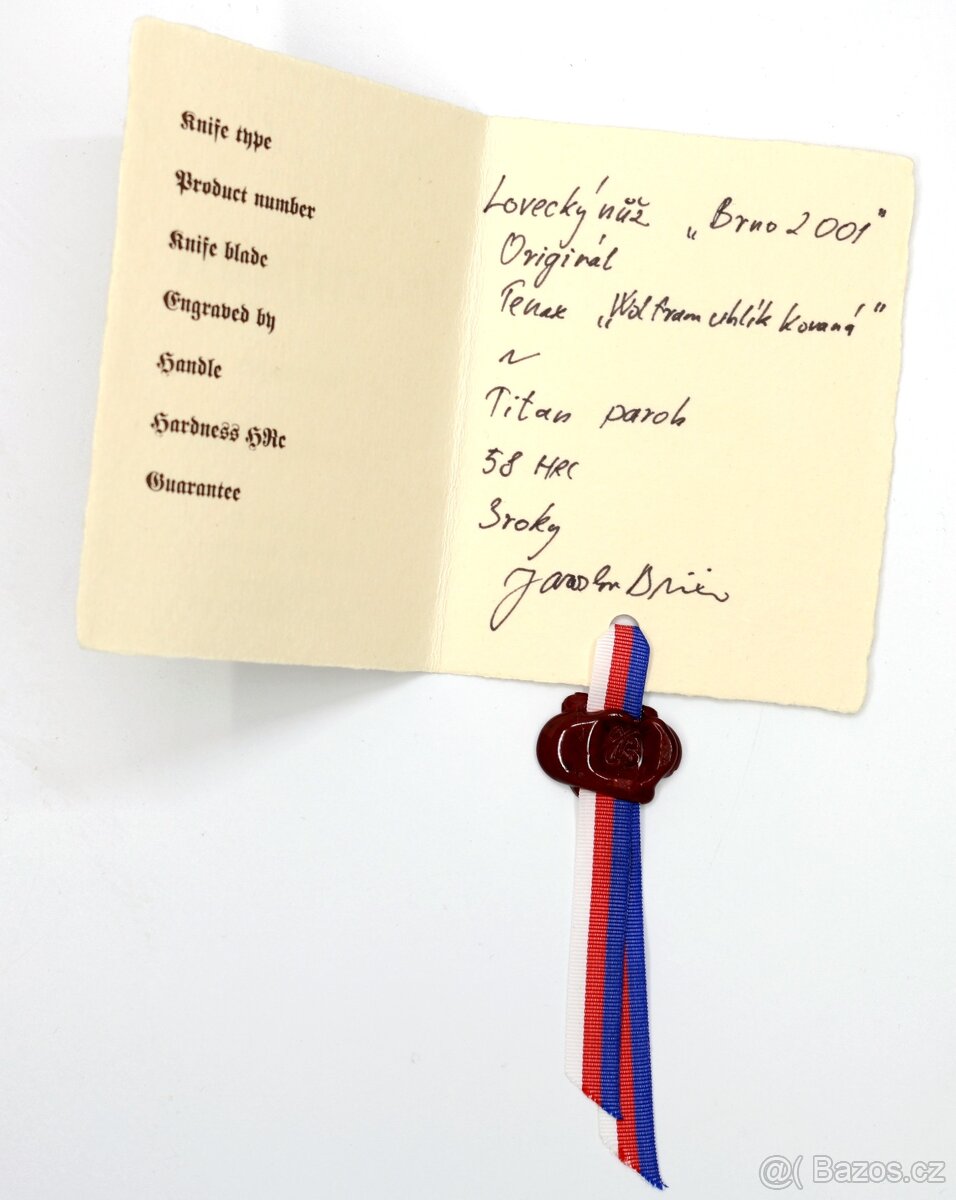 Knife type
Product number
Knife blade
Engraved by
Handle
Hardness HRc
Guarantee
Lovecký nůž „Brno 2001"
Originál
Tenax „Wolfram uhlík kovaná"
~
Titan paroh
58 HRC
3 roky
@( Bazos.cz